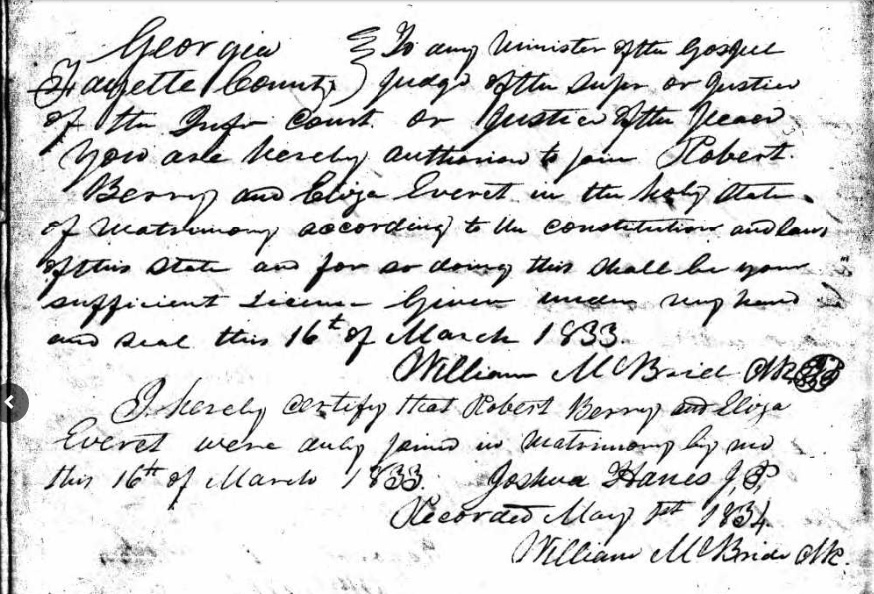 Georgia } To any Minister of the Gospel
Fayette County } Judge of the Supr or Justice
of the Infr Court. or Justice of the Peace
You are hereby authorise to join Robert.
Berry and Eliza Everet in the holy State
of Matrimony according to the constitution and laws
of this State and for so doing this shall be your
sufficient License Given under my hand
and seal this 16th of March 1833.
William McBride
I hereby certify that Robert Berry and Eliza
Everet were duly joined in Matrimony by me
this 16th of March 1833. Joshua Hanes J,P,
Recorded May 1st 1834
William McBride